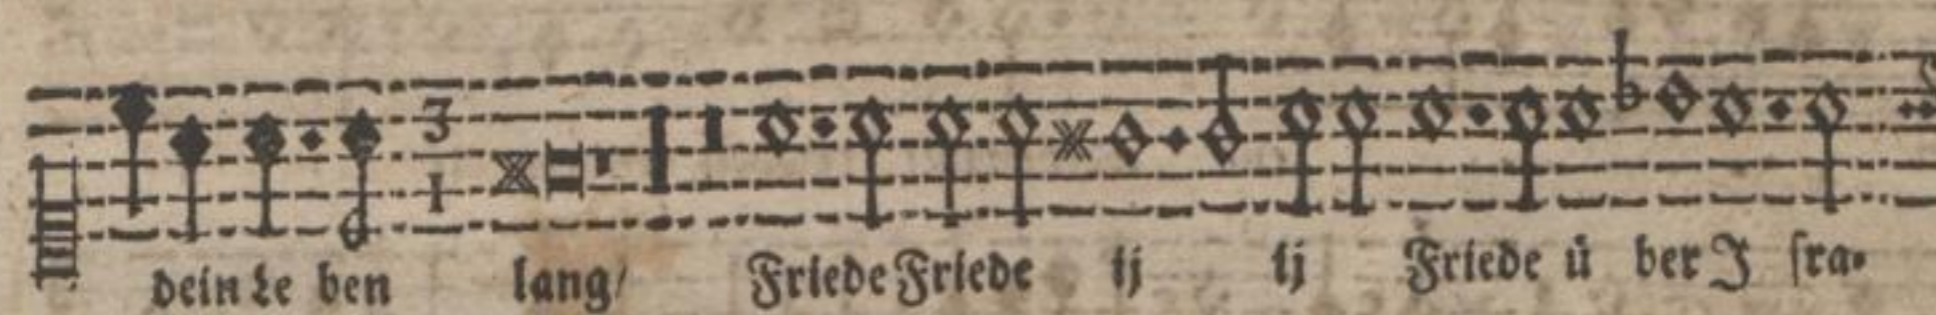 3
1
dein Le ben lang/ Friede Friede ij ij Friede ü ber J ſra-